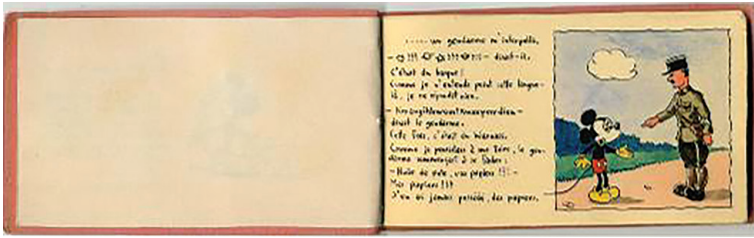 ..... un gendarme m'interpella.
!!! !!! !!! - disait-il.
C'était du basque!
Comme je n'entends point cette langue-
là, je ne répondit rien.
disait le gendarme.
Cette fois, c'était du béarnais.
Comme je persistais à me taire, le gen-
darme commençait à se fâcher:
- vos papiers !!! -
Mes papiers !!!
J'en ai jamais possédé, des papiers.